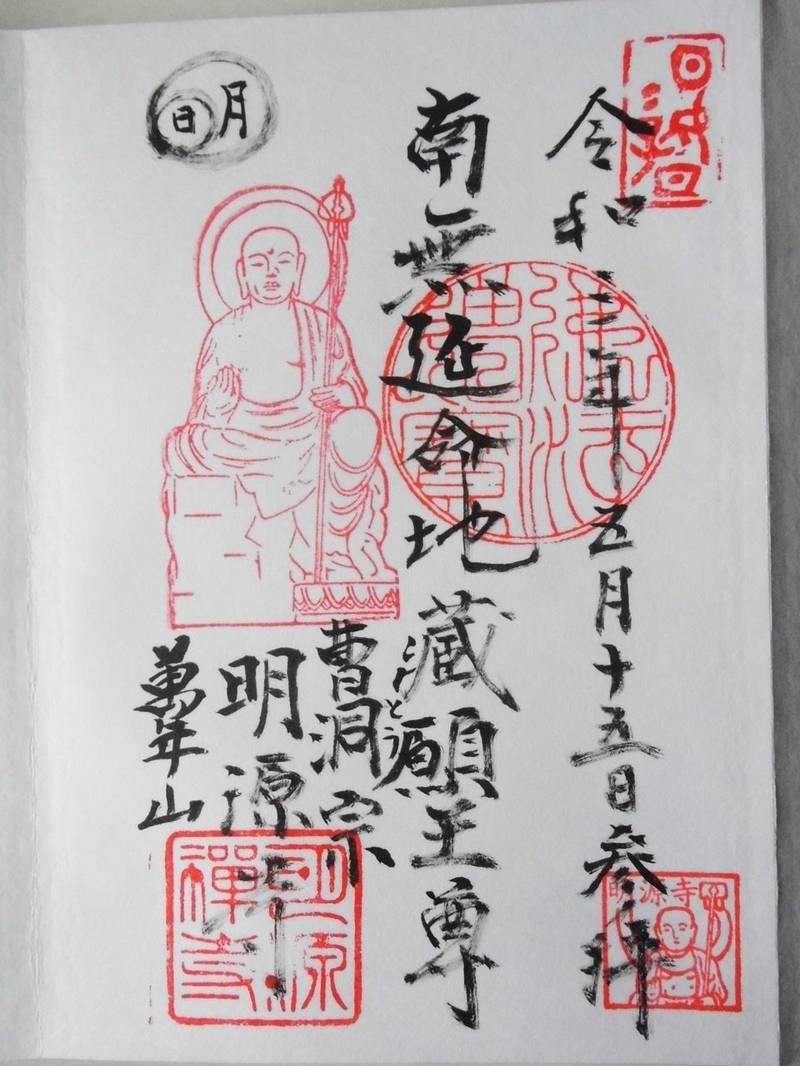 令和三年五月十五日参拝
南無延命地蔵願王尊
曹洞宗
明源寺
萬年山
月
日
佛法僧寶
明源禪寺
明源寺